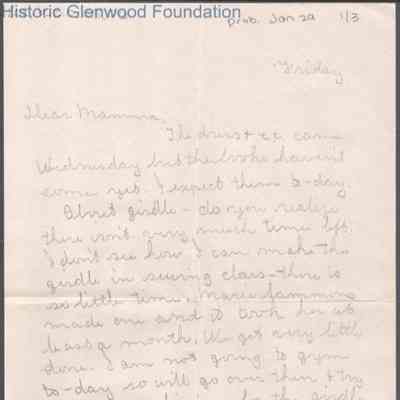 Historic Glenwood Foundation
prob. Jan 29 1/3
Friday
Dear Mamma,
The dress etc. came
Wednesday but the books haven't
come yet. I expect them to-day.
About girdle - do you realize
there isn't very much time left.
I don't see how I can make the
girdle in sewing class - there is
so little time. Marie
made one and it took her at
least a month. We get very little
done. I am not going to gym
to-day so will go over then & try
the girdle